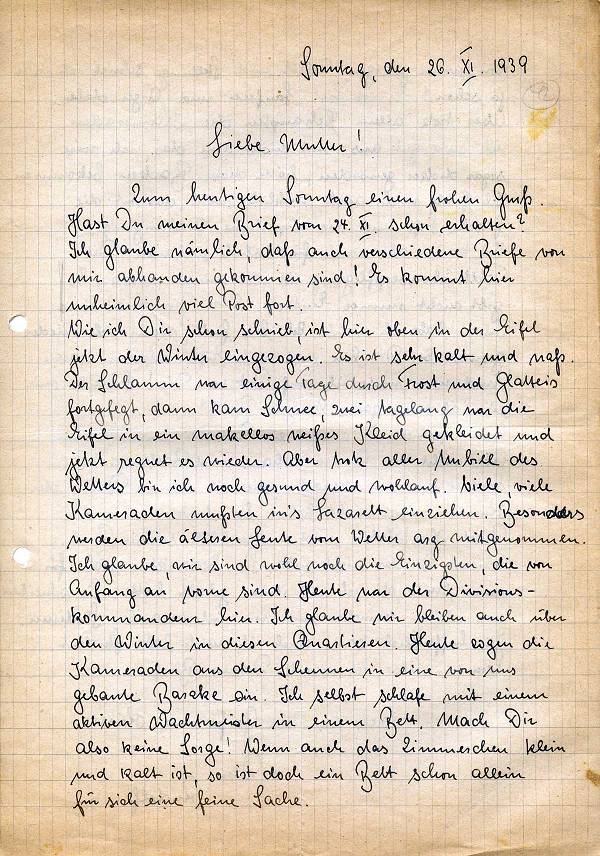 Sonntag, den 26. XI. 1939
Liebe Mutter!
Zum heutigen Sonntag einen frohen Gruß.
Hast Du meinen Brief vom 24. XI. schon erhalten?
Ich glaube nämlich, daß auch verschiedene Briefe von
mir abhanden gekommen sind! Es kommt hier
unheimlich viel Post fort.
Wie ich Dir schon schrieb, ist hier oben in der Eifel
jetzt der Winter eingezogen. Es ist sehr kalt und naß.
Der Schlamm war einige Tage durch Frost und Glatteis
fortgefegt, dann kam Schnee, zwei tagelang war die
Eifel in ein makellos weißes Kleid gekleidet und
jetzt regnet es wieder. Aber trotz aller Unbill des
Wetters bin ich noch gesund und wohlauf. Viele, viele
Kameraden mußten in's Lazarett einziehen. Besonders
werden die älteren Leute vom Wetter arg mitgenommen.
Ich glaube, wir sind wohl noch die Einzigsten, die von
Anfang an vorne sind. Heute war der Divisions-
kommandeur hier. Ich glaube wir bleiben auch über
den Winter in diesen Quartieren. Heute zogen die
Kameraden aus den Scheunen in eine von uns
gebaute Barake ein. Ich selbst schlafe mit einem
aktiven Wachtmeister in einem Bett. Mach Dir
also keine Sorge! Wenn auch das Zimmerchen klein
und kalt ist, so ist doch ein Bett schon allein
für sich eine feine Sache.